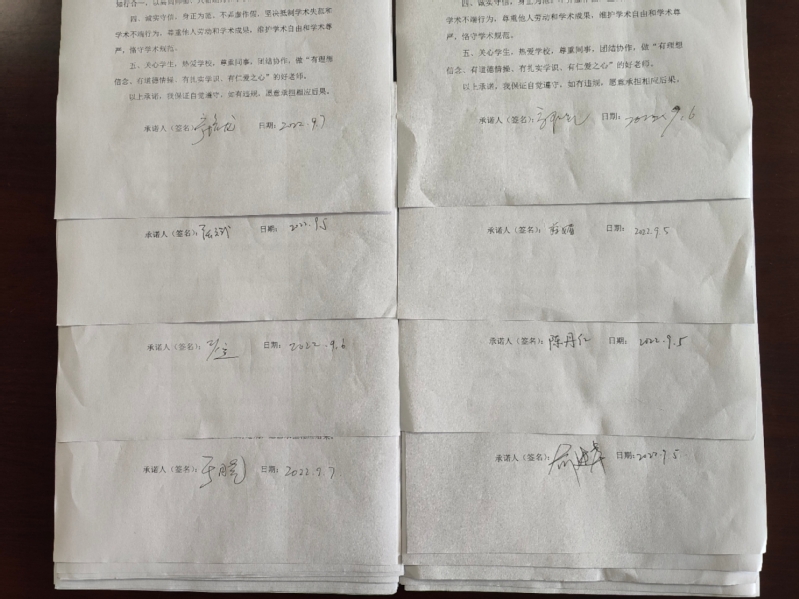 四、诚实守信，身正为范，不弄虚作假，坚决抵制学术失范和
学术不端行为，尊重他人劳动和学术成果，维护学术自由和学术尊
严，恪守学术规范。
五、关心学生，热爱学校，尊重同事，团结协作，做“有理想
信念、有道德情操、有扎实学识、有仁爱之心”的好老师。
以上承诺，我保证自觉遵守，如有违规，愿意承担相应后果。
承诺人（签名）： 日期：2022.9.7
承诺人（签名）： 日期：2022.9.5
承诺人（签名）： 日期：2022.9.6
承诺人（签名）： 日期：2022.9.7
学术不端行为，尊重他人劳动和学术成果，维护学术自由和学术尊
严，恪守学术规范。
五、关心学生，热爱学校，尊重同事，团结协作，做“有理想
信念、有道德情操、有扎实学识、有仁爱之心”的好老师。
以上承诺，我保证自觉遵守，如有违规，愿意承担相应后果。
承诺人（签名）： 日期：2022.9.6
承诺人（签名）： 日期：2022.9.5
承诺人（签名）：陈丹红 日期：2022.9.5
承诺人（签名）： 日期：2022.9.5